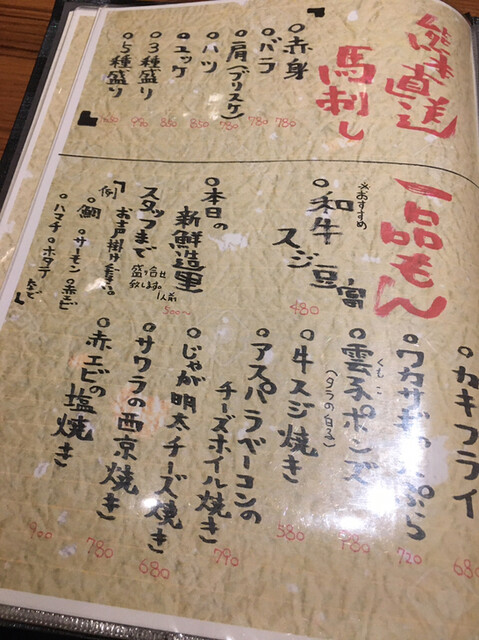 熊本直送
馬刺し
『
赤身
780
バラ
780
肩(ブリスケ)
780
ハツ
850
ユッケ
850
3種盛り
980
5種盛り
』
一品もん
※おすすめ
和牛
スジ豆富
480
本日の
新鮮造里
盛り合せ
致します。
1人前
500〜
スタッフまで
お声掛け下さい。
『例
鯛 サーモン 赤エビ
ハマチ ホタテ など』
カキフライ
680
ワカサギの天ぷら
720
くもこ
雲子ポンズ
(タラの白子)
780
牛スジ焼き
580
アスパラベーコンの
チーズホイル焼き
790
じゃが明太チーズ焼き
680
サワラの西京焼き
780
赤エビの塩焼き
900